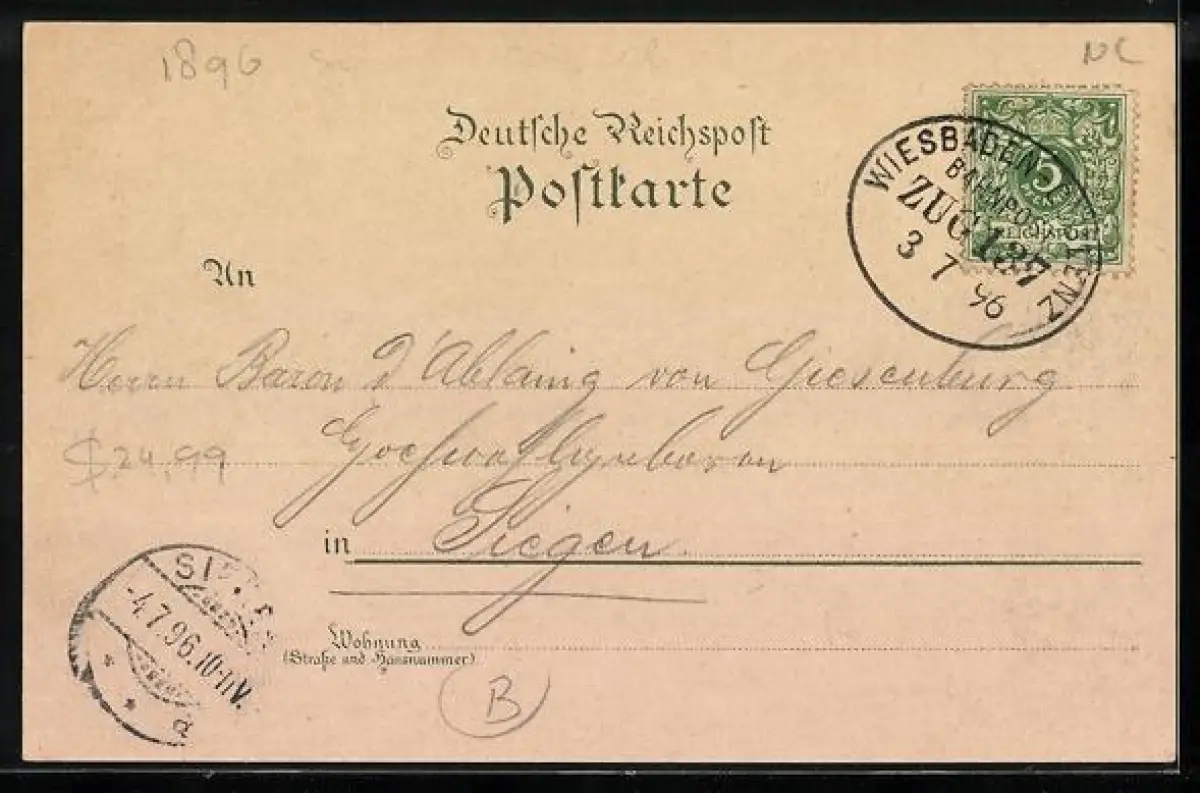 1896
NC
Deutsche Reichspost
Postkarte
5
REICHSPOST
WIESBADEN
BAHNPOST
ZUG 137
3 7 96
An
Herrn Baron d'Ablaing von Giesenburg
$24,99
Hochwohlgeboren
in Siegen.
SI
-4.7.96.10-11V.
* *
a
Wohnung
(Straße und Hausnummer)
B